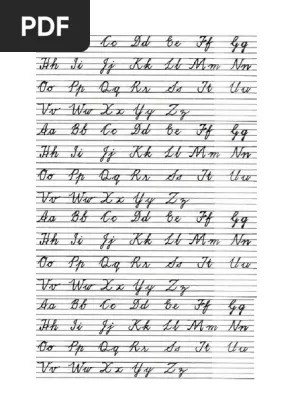 PDF
Cc Dd Ee Ff Gg
Hh Ii Jj Kk Ll Mm Nn
Oo Pp Qq Rr Ss Tt Uu
Vv Ww Xx Yy Zz
Aa Bb Cc Dd Ee Ff Gg
Hh Ii Jj Kk Ll Mm Nn
Oo Pp Qq Rr Ss Tt Uu
Vv Ww Xx Yy Zz
Aa Bb Cc Dd Ee Ff Gg
Hh Ii Jj Kk Ll Mm Nn
Oo Pp Qq Rr Ss Tt Uu
Vv Ww Xx Yy Zz
Aa Bb Cc Dd Ee Ff Gg
Hh Ii Jj Kk Ll Mm Nn
Oo Pp Qq Rr Ss Tt Uu
Vv Ww Xx Yy Zz